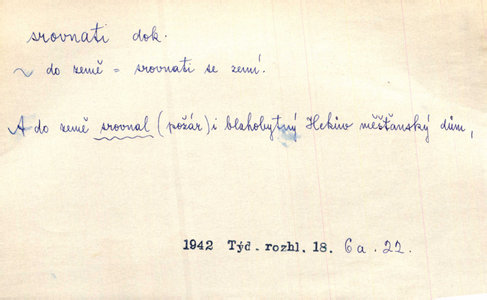 srovnati dok.
~ do země = srovnati se zemí.
A do země srovnal (požár) i blahobytný Hekův měšťanský dům,
1942 Týd. rozhl. 18. 6a. 22.